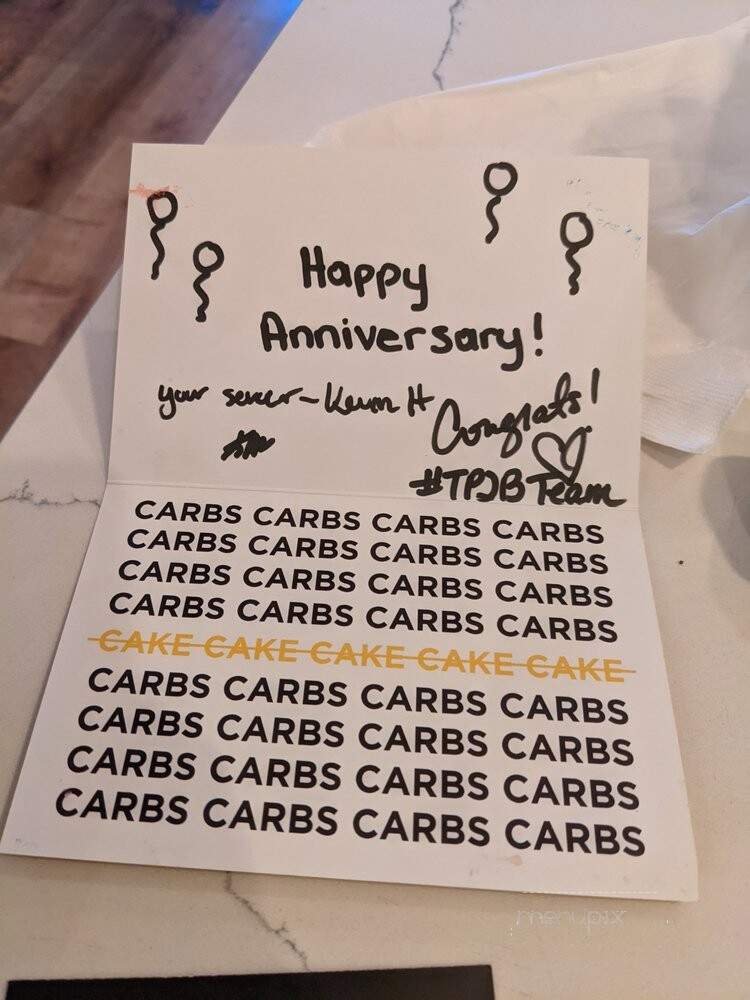 Happy
Anniversary!
your server - Kevin H
Congrats!
#TPJB Team
CARBS CARBS CARBS CARBS
CARBS CARBS CARBS CARBS
CARBS CARBS CARBS CARBS
CARBS CARBS CARBS CARBS
CAKE CAKE CAKE CAKE CAKE
CARBS CARBS CARBS CARBS
CARBS CARBS CARBS CARBS
CARBS CARBS CARBS CARBS
CARBS CARBS CARBS CARBS
menupix